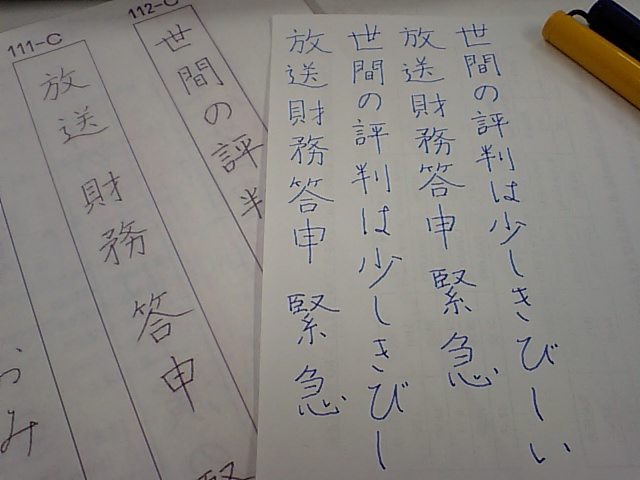 世間の評判は少しきびしい
放送財務答申 緊急
世間の評判は少しきびし
放送財務答申 緊急
112-C
世間の評
111-C
放送 財務 答申
み